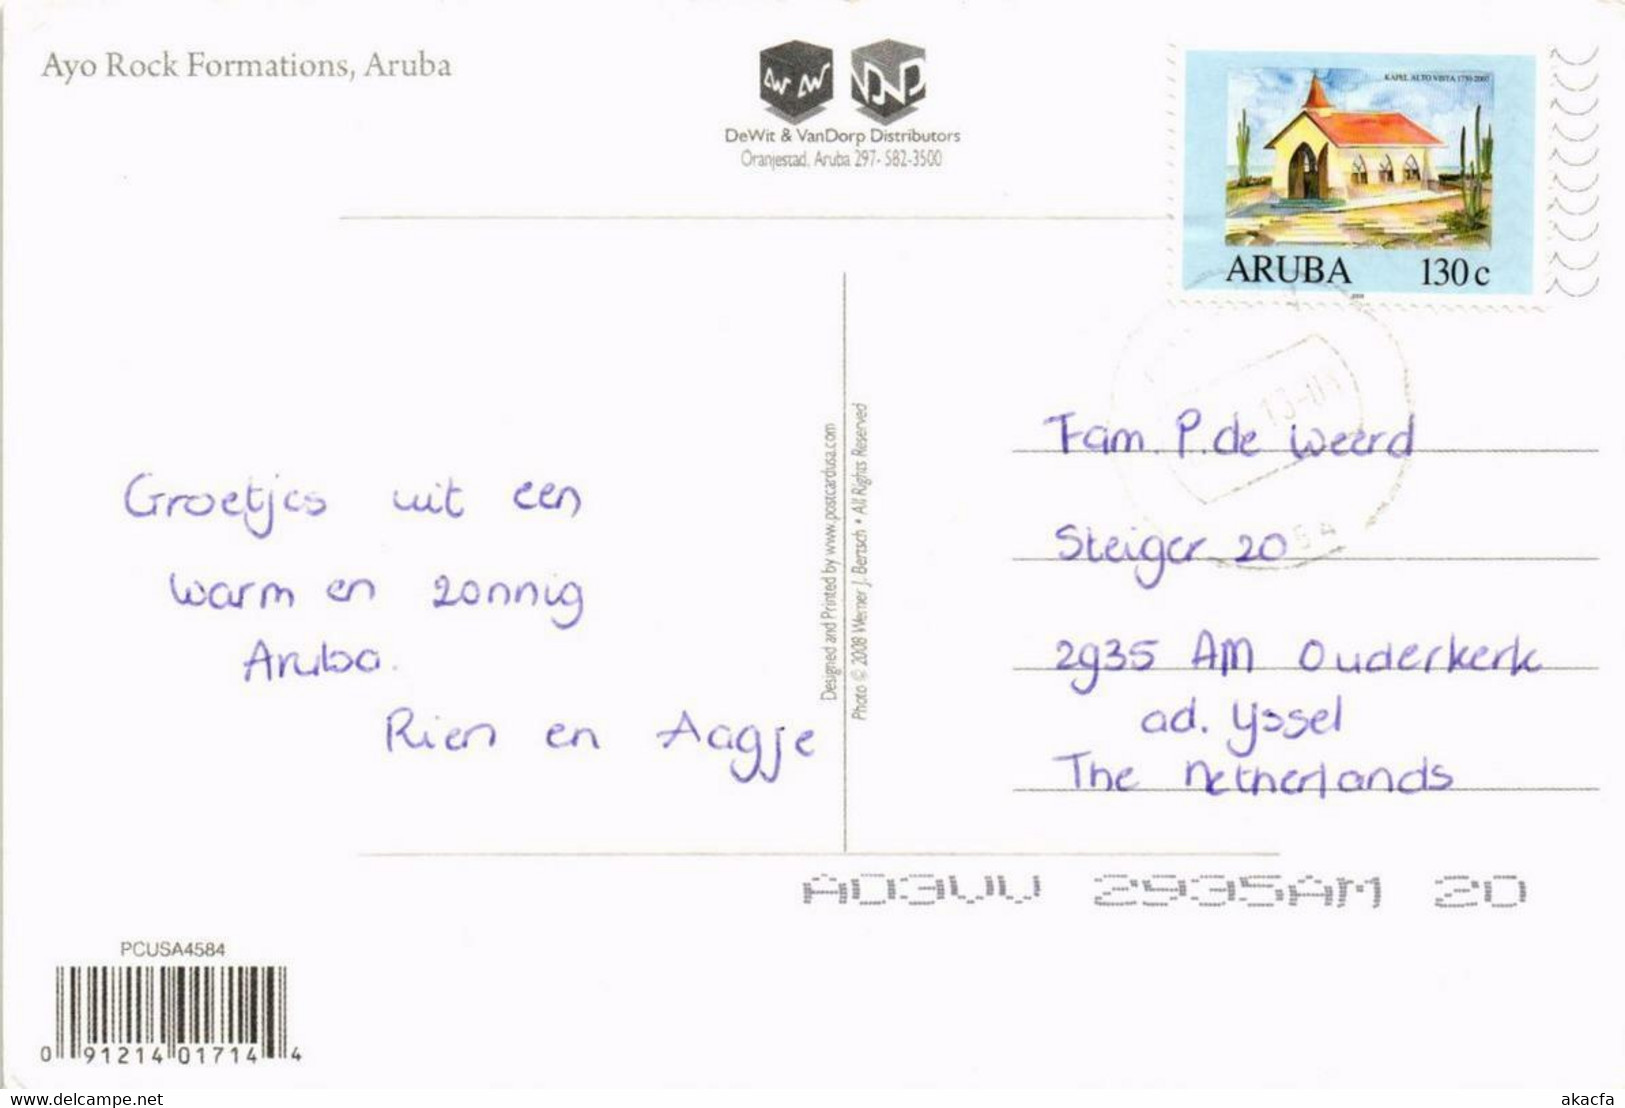 Ayo Rock Formations, Aruba
DeWit & VanDorp Distributors
Oranjestad, Aruba 297- 582-3500
KAPEL ALTO VISTA 1750-2007
ARUBA 130 c
Groetjes uit een
warm en zonnig
Aruba.
Rien en Aagje
Designed and Printed by www.postcardusa.com
Photo © 2008 Werner J. Bertsch • All Rights Reserved
Fam. P. de Weerd
Steiger 20
2935 AM Ouderkerk
ad. Yssel
The Netherlands
AD3UU 2935AM 20
PCUSA4584
0 91214 01714 4
www.delcampe.net
akacfa